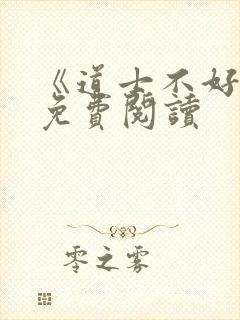 《道士不好
免費閱讀
零之雾